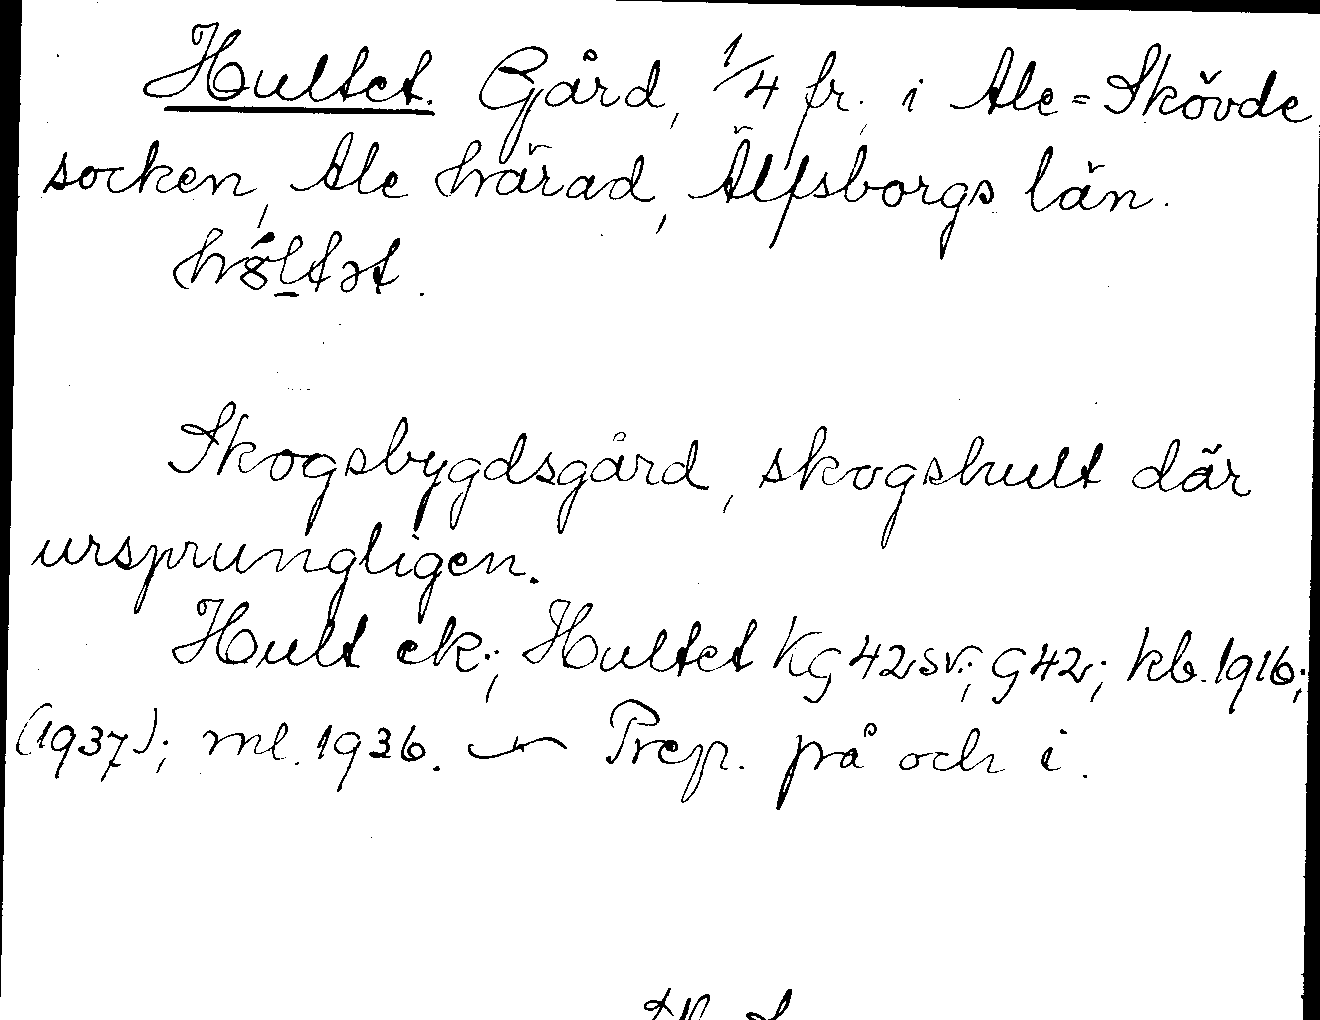 Hultet. Gård, 1/4 fr. i Ale=Skövde
socken, Ale härad, Älfsborgs län.
Skogsbygdsgård, skogshult där
ursprungligen.
Hult ek.; Hultet KG 42 sv.; G 42; kb. 1916;
(1937); ml. 1936. — Prep. på och i.